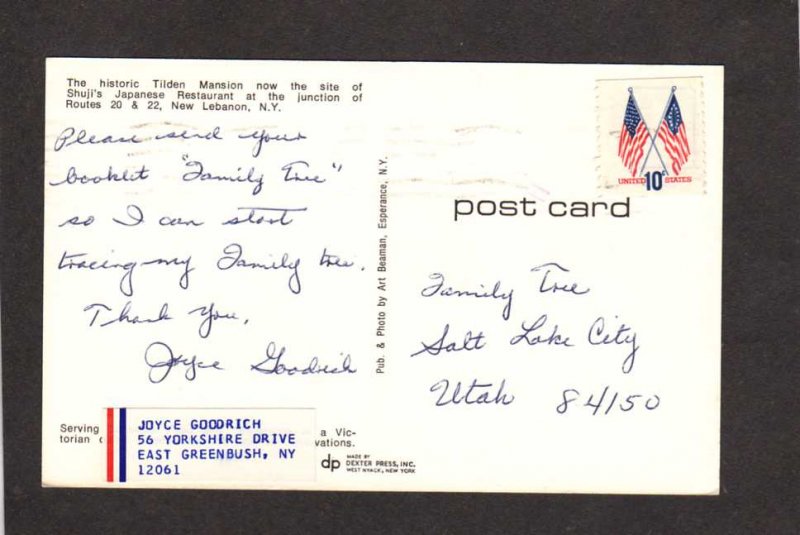 The historic Tilden Mansion now the site of
Shuji's Japanese Restaurant at the junction of
Routes 20 & 22, New Lebanon, N.Y.
Please send your
booklet "Family Tree"
so I can start
tracing my Family tree.
Thank You,
Joyce Goodrich
Serving
a Vic-
torian
vations.
JOYCE GOODRICH
56 YORKSHIRE DRIVE
EAST GREENBUSH, NY
12061
dp
MADE BY
DEXTER PRESS, INC.
WEST NYACK, NEW YORK
Pub. & Photo by Art Beaman, Esperance, N.Y.
UNITED 10c STATES
post card
Family Tree
Salt Lake City
Utah 84150